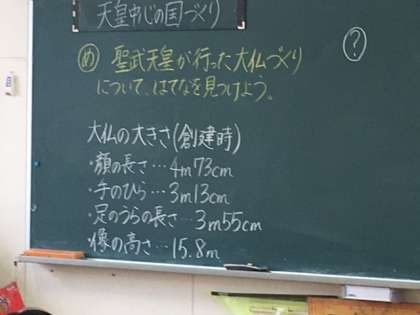 天皇中心の国づくり
?
め 聖武天皇が行った大仏づくり
について、はてなを見つけよう。
大仏の大きさ(創建時)
・顔の長さ…4m73cm
・手のひら…3m13cm
・足のうらの長さ…3m55cm
・像の高さ…15.8m